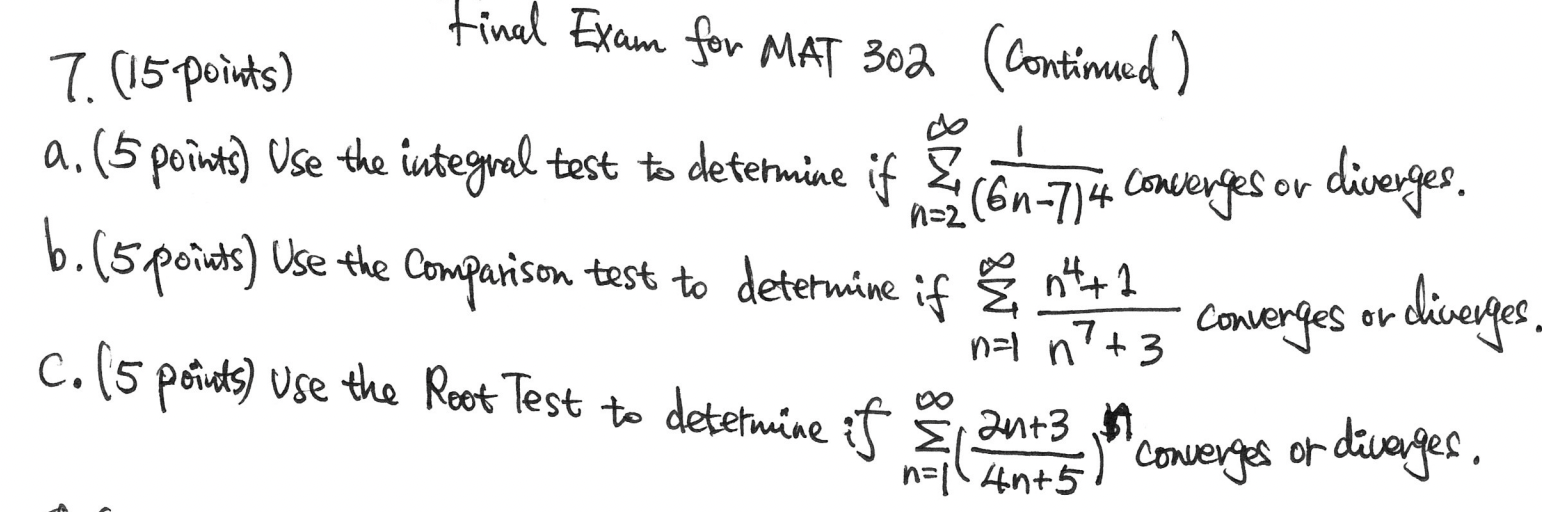 Final Exam for MAT 302 (Continued)
7. (15 points)
a. (5 points) Use the integral test to determine if \sum_{n=2}^{\infty} \frac{1}{(6n-7)^4} converges or diverges.
b. (5 points) Use the Comparison test to determine if \sum_{n=1}^{\infty} \frac{n^4+1}{n^7+3} converges or diverges.
c. (5 points) Use the Root Test to determine if \sum_{n=1}^{\infty} \left(\frac{2n+3}{4n+5}\right)^n converges or diverges.